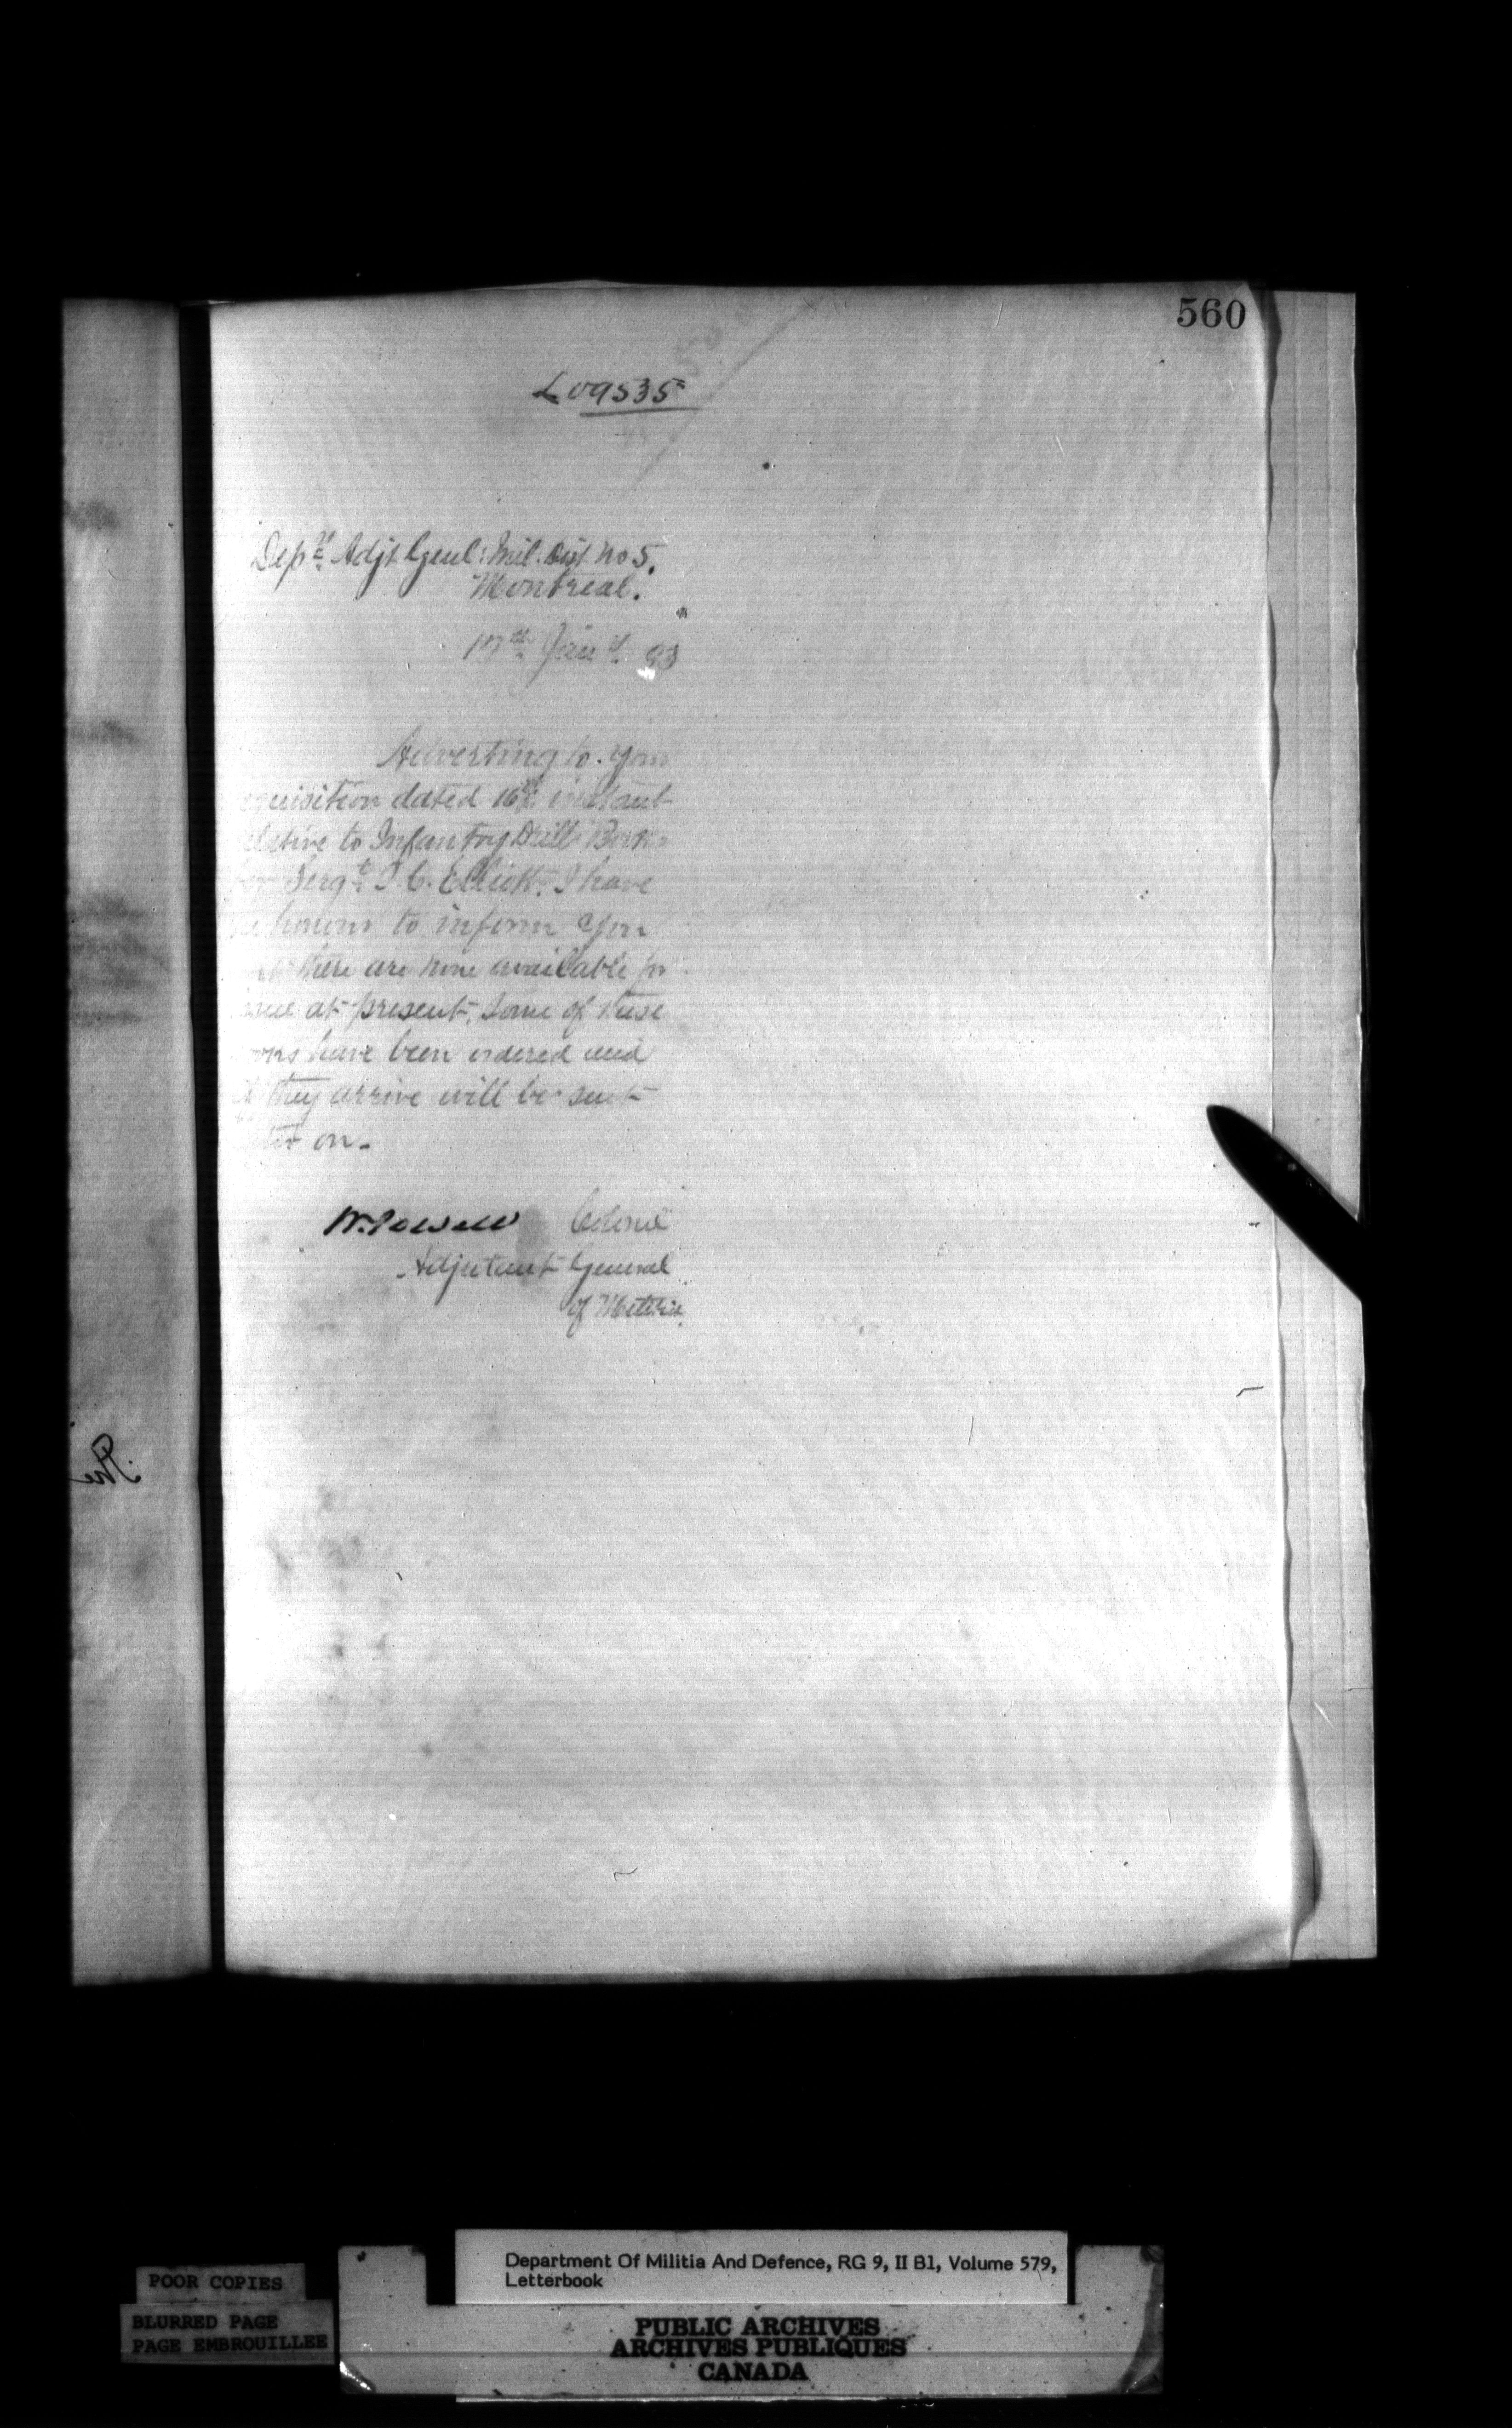 560
L09535
Depy Adjt Genl: Mil. Dist no 5.
Montreal.
17th Jany. 93
Adverting to your
equisition dated 16th instant
elative to Infantry Drill Books
for Sergt. J. C. Elliott. I have
honour to inform you
there are none available for
ssue at present. Some of these
ooks have been ordered and
they arrive will be sent
on.
W. Powell Colonel
Adjutant General
of Militia.
The
POOR COPIES
BLURRED PAGE
PAGE EMBROUILLEE
Department Of Militia And Defence, RG 9, II B1, Volume 579,
Letterbook
PUBLIC ARCHIVES
ARCHIVES PUBLIQUES
CANADA